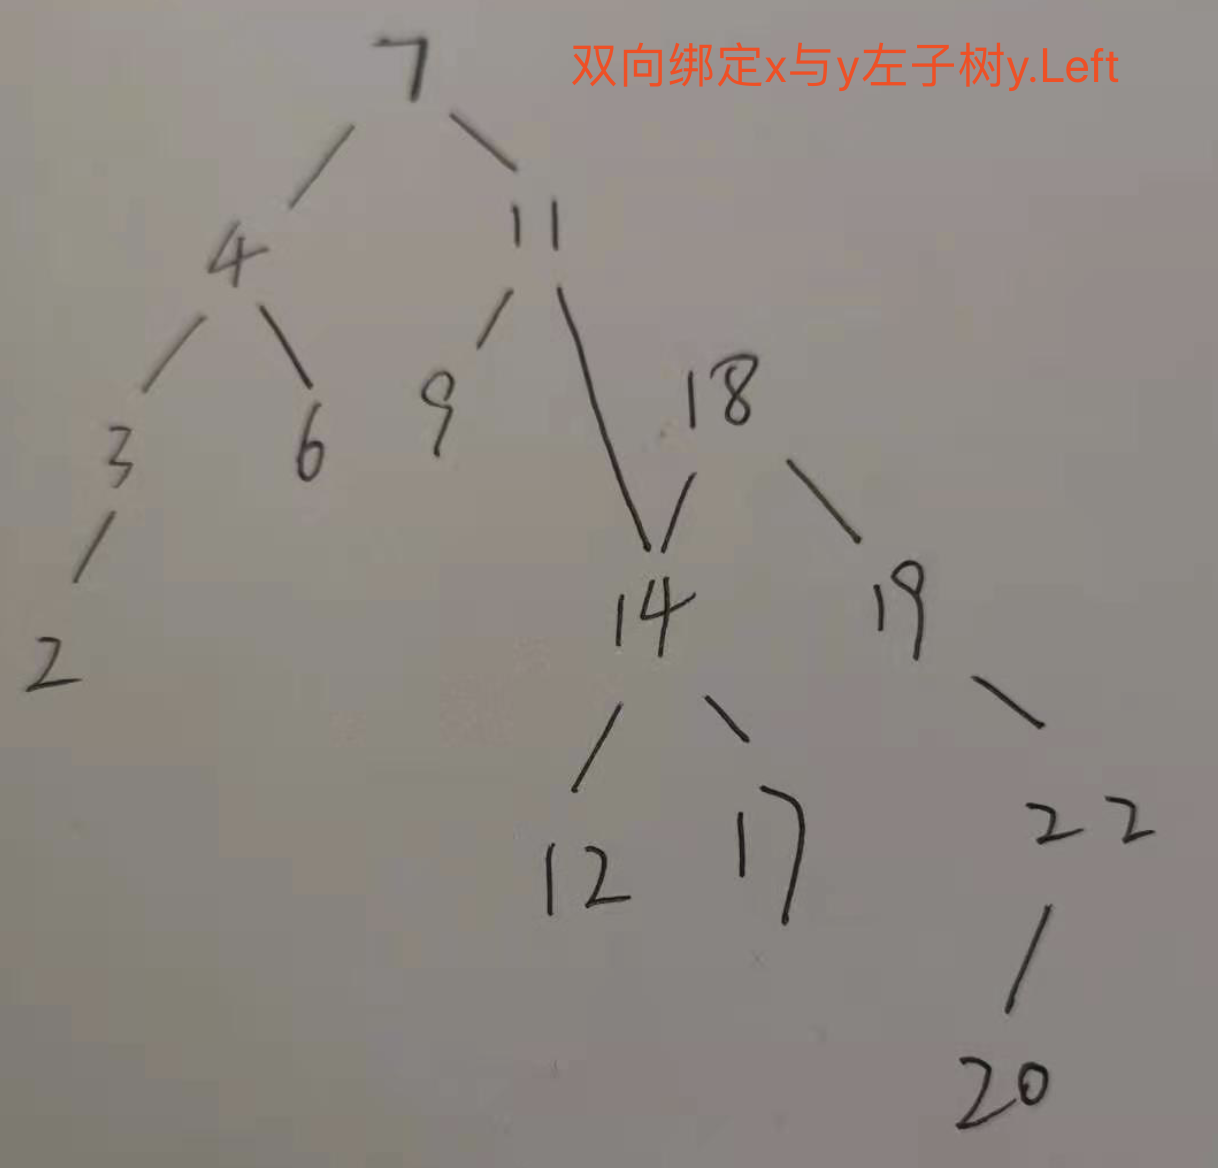 双向绑定x与y左子树y.Left
7
4 11
3 6 9 18
2 14 19
12 17 22
20